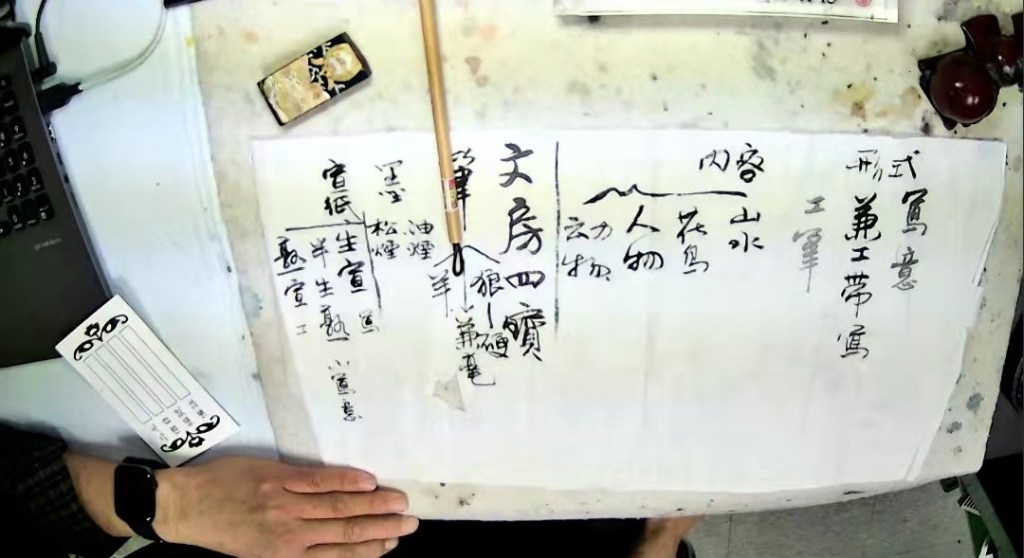 形式
寫意
兼工帶寫
工筆
内容
山水
花鳥
人物
动物
文房四寶
筆
狼 硬
兼毫
羊
墨
油煙
松煙
宣紙
生宣 寫
半生熟 小寫意
熟宣 工